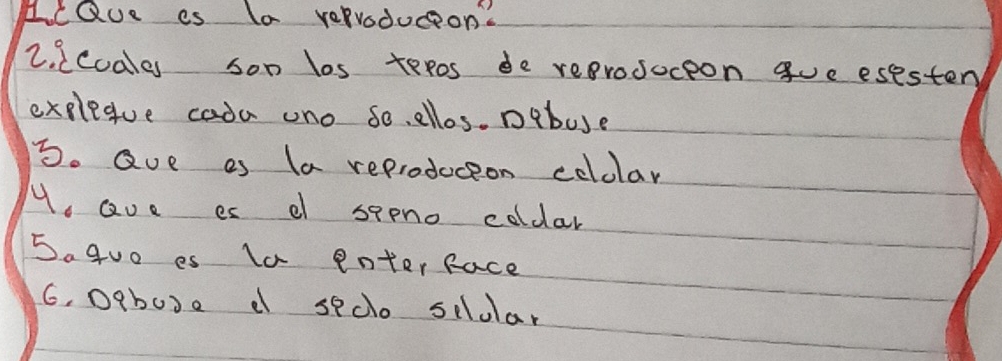 1. ¿Que es la reproducion?
2. ¿Cuales son los tepos de reproducion que esesten
expleque cada uno de ellos. Debuje
3. Que es la reproduceon celular
4. que es el sepno celdar
5. que es la enterface
6. Debuje el seclo selular